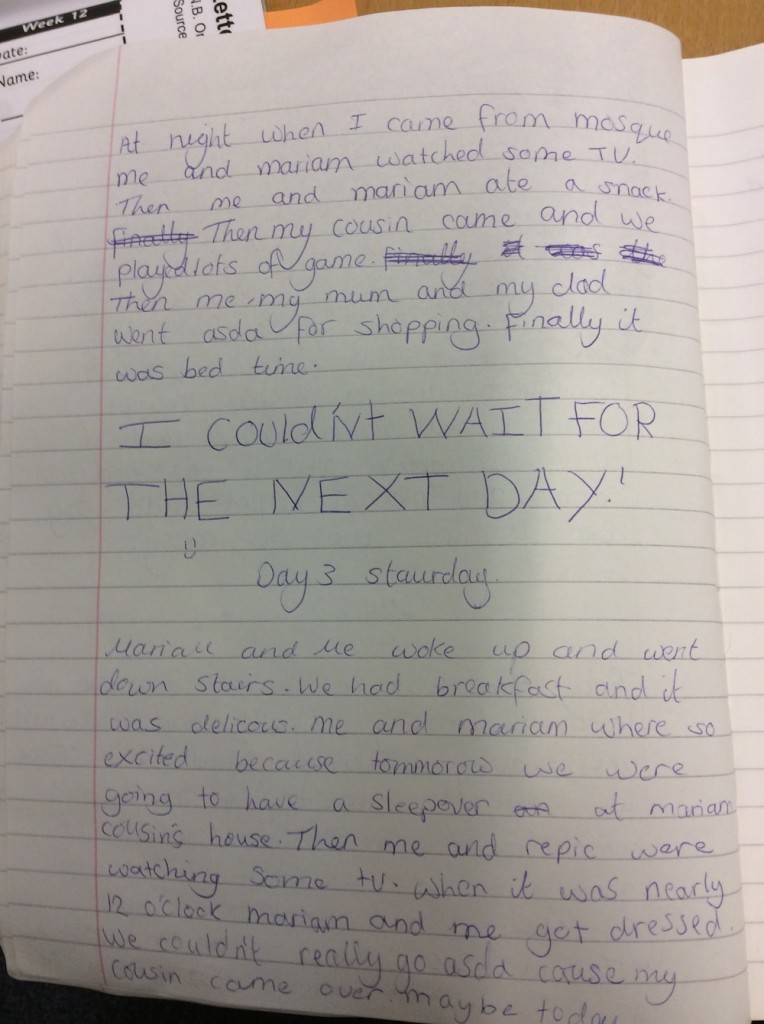 Week 12
ate:
Name:
Lett
N.B. Or
Source
At night when I came from mosque
me and mariam watched some TV.
Then me and mariam ate a snack.
finally Then my cousin came and we
played lots of game. finally it was the
Then me, my mum and my dad
went asda for shopping. Finally it
was bed time.
I COUldN't WAIT FOR
THE NEXT DAY!
Day 3 staurday.
Mariam and Me woke up and went
down stairs. We had breakfast and it
was delicous. me and mariam where so
excited because tommorow we were
going to have a sleepover at mariam
cousin's house. Then me and repic were
watching some tv. when it was nearly
12 o'clock mariam and me got dressed.
We couldn't really go asda cause my
cousin came over. maybe today